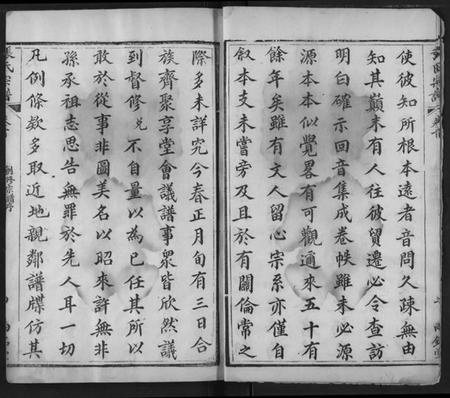 使彼知所根本遠者音問久疎無由
知其巔末有人往彼貿遷必令查訪
明白確示回音集成卷帙雖未必源
源本本似覺畧有可觀通來五十有
餘年矣雖有文人留心宗系亦僅自
叙本支未嘗旁及且於有關倫常之
際多未詳究今春正月旬有三日合
族齊聚享堂會議譜事眾皆欣然議
到督修兊不自量以為己任其所以
敢於從事非圖美名以昭來許無非
孫承祖志思告無罪於先人耳一切
凡例條欵多取近地親鄰譜牒仿其
氏宗譜